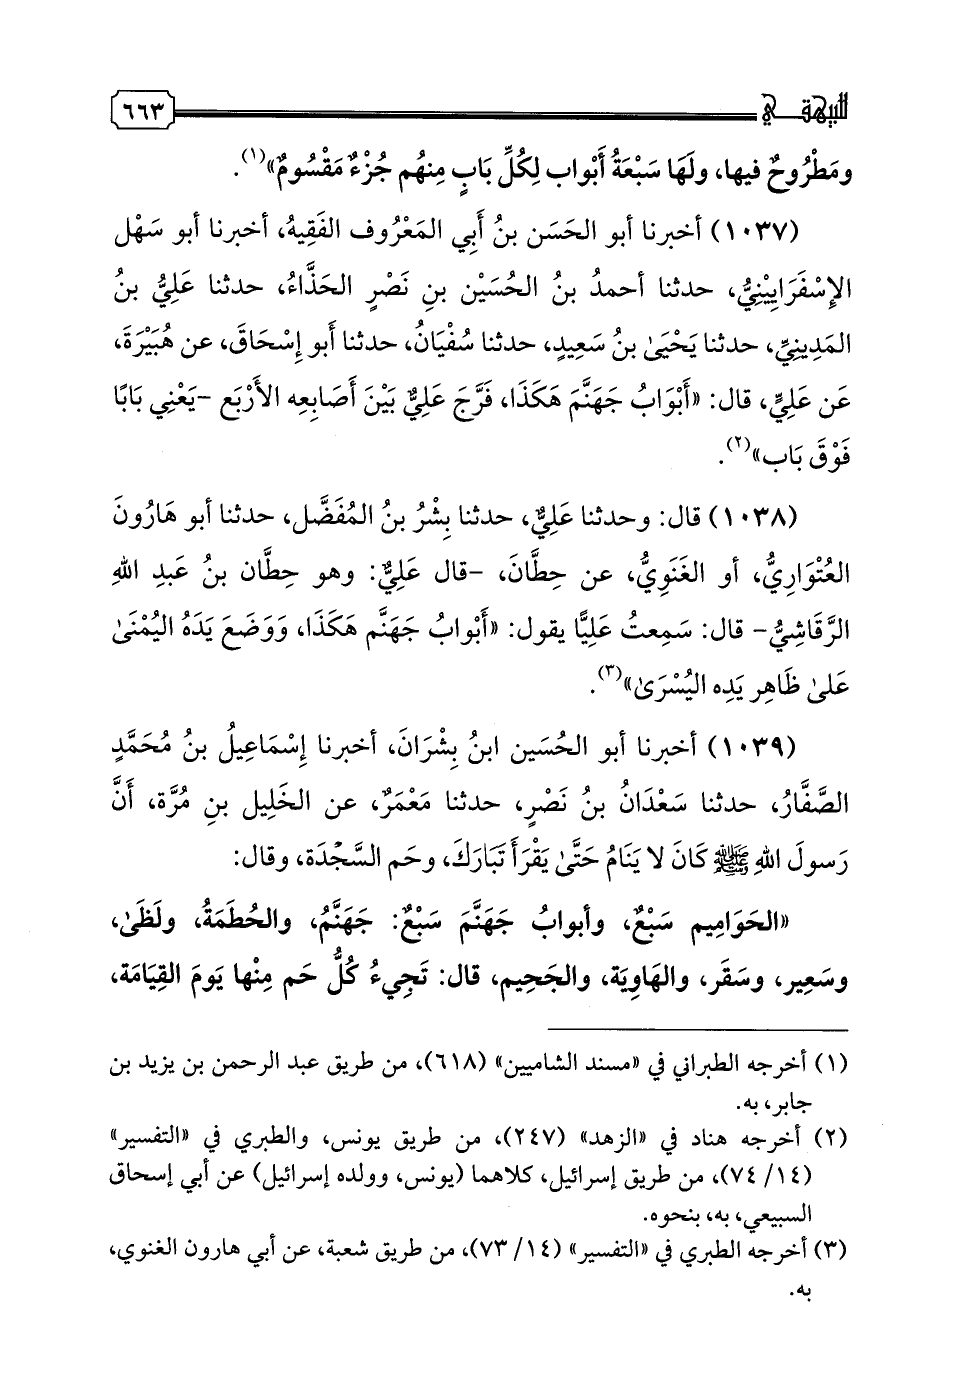 للبيهقي ٦٦٣
ومَطْرُوحٌ فيها، ولَهَا سَبْعَةُ أَبْواب لِكُلِّ بَابٍ مِنهُم جُزْءٌ مَقْسُومٌ»(١).
(١٠٣٧) أخبرنا أبو الحَسَن بنُ أَبي المَعْرُوف الفَقِيهُ، أخبرنا أبو سَهْل
الإِسْفَرَايِيْنِيُّ، حدثنا أحمدُ بنُ الحُسَيْن بنِ نَصْرٍ الحَذَّاءُ، حدثنا عَلِيُّ بنُ
المَدِينِيِّ، حدثنا يَحْيَىٰ بنُ سَعِيدٍ، حدثنا سُفْيَانُ، حدثنا أبو إِسْحَاقَ، عن هُبَيْرَةَ،
عَن عَلِيٍّ، قال: «أَبْوَابُ جَهَنَّمَ هَكَذَا، فَرَّجَ عَلِيٌّ بَيْنَ أَصَابِعِه الأَرْبَع -يَعْنِي بَابًا
فَوْقَ بَاب»(٢).
(١٠٣٨) قال: وحدثنا عَلِيٌّ، حدثنا بِشْرُ بنُ المُفَضَّل، حدثنا أبو هَارُونَ
العُتْوَارِيُّ، أو الغَنَوِيُّ، عن حِطَّانَ، -قال عَلِيٌّ: وهو حِطَّان بنُ عَبدِ اللهِ
الرَّقَاشِيُّ- قال: سَمِعتُ عَلِيًّا يقول: «أَبْوابُ جَهَنَّم هَكَذَا، وَوَضَعَ يَدَهُ اليُمْنَىٰ
عَلىٰ ظَاهِر يَدِه اليُسْرَىٰ»(٣).
(١٠٣٩) أخبرنا أبو الحُسَين ابنُ بِشْرَانَ، أخبرنا إِسْمَاعِيلُ بنُ مُحَمَّدٍ
الصَّفَّارُ، حدثنا سَعْدَانُ بنُ نَصْرٍ، حدثنا مَعْمَرٌ، عن الخَلِيل بنِ مُرَّة، أَنَّ
رَسولَ اللهِ ﷺ كَانَ لا يَنَامُ حَتَّىٰ يَقْرَأَ تَبَارَكَ، وحَم السَّجْدَة، وقال:
«الحَوَامِيم سَبْعٌ، وأبوابُ جَهَنَّمَ سَبْعٌ: جَهَنَّمُ، والحُطَمَةُ، ولَظَىٰ،
وسَعِير، وسَقَر، والهَاوِيَة، والجَحِيم، قال: تَجِيءُ كُلُّ حَم مِنْها يَومَ القِيَامَة،
(١) أخرجه الطبراني في «مسند الشاميين» (٦١٨)، من طريق عبد الرحمن بن يزيد بن
جابر، به.
(٢) أخرجه هناد في «الزهد» (٢٤٧)، من طريق يونس، والطبري في «التفسير»
(١٤/ ٧٤)، من طريق إسرائيل، كلاهما (يونس، وولده إسرائيل) عن أبي إسحاق
السبيعي، به، بنحوه.
(٣) أخرجه الطبري في «التفسير» (١٤/ ٧٣)، من طريق شعبة، عن أبي هارون الغنوي،
به.